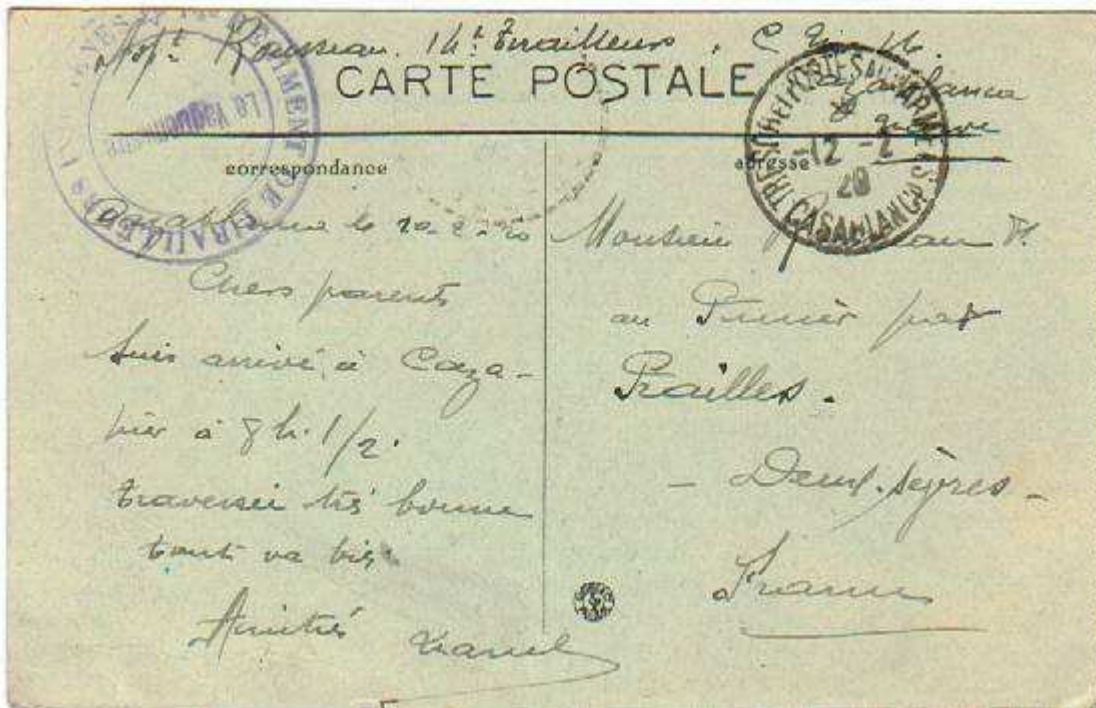 Rousseau. 14e Tirailleurs
CARTE POSTALE
Casablanca
TRESOR ET POSTES AUX ARMEES
-12 -2
20
CASABLANCA
REGIMENT DE TIRAILLEURS
Le Vaguemestre
correspondance
adresse
Casablanca le 10-2-20
Chers parents
Suis arrivé à Caza-
hier à 8 h. 1/2.
traversée très bonne
tout va bien
Amitiés
Monsieur Rousseau
au Prunier
Prailles.
- Deux-Sèvres -
France